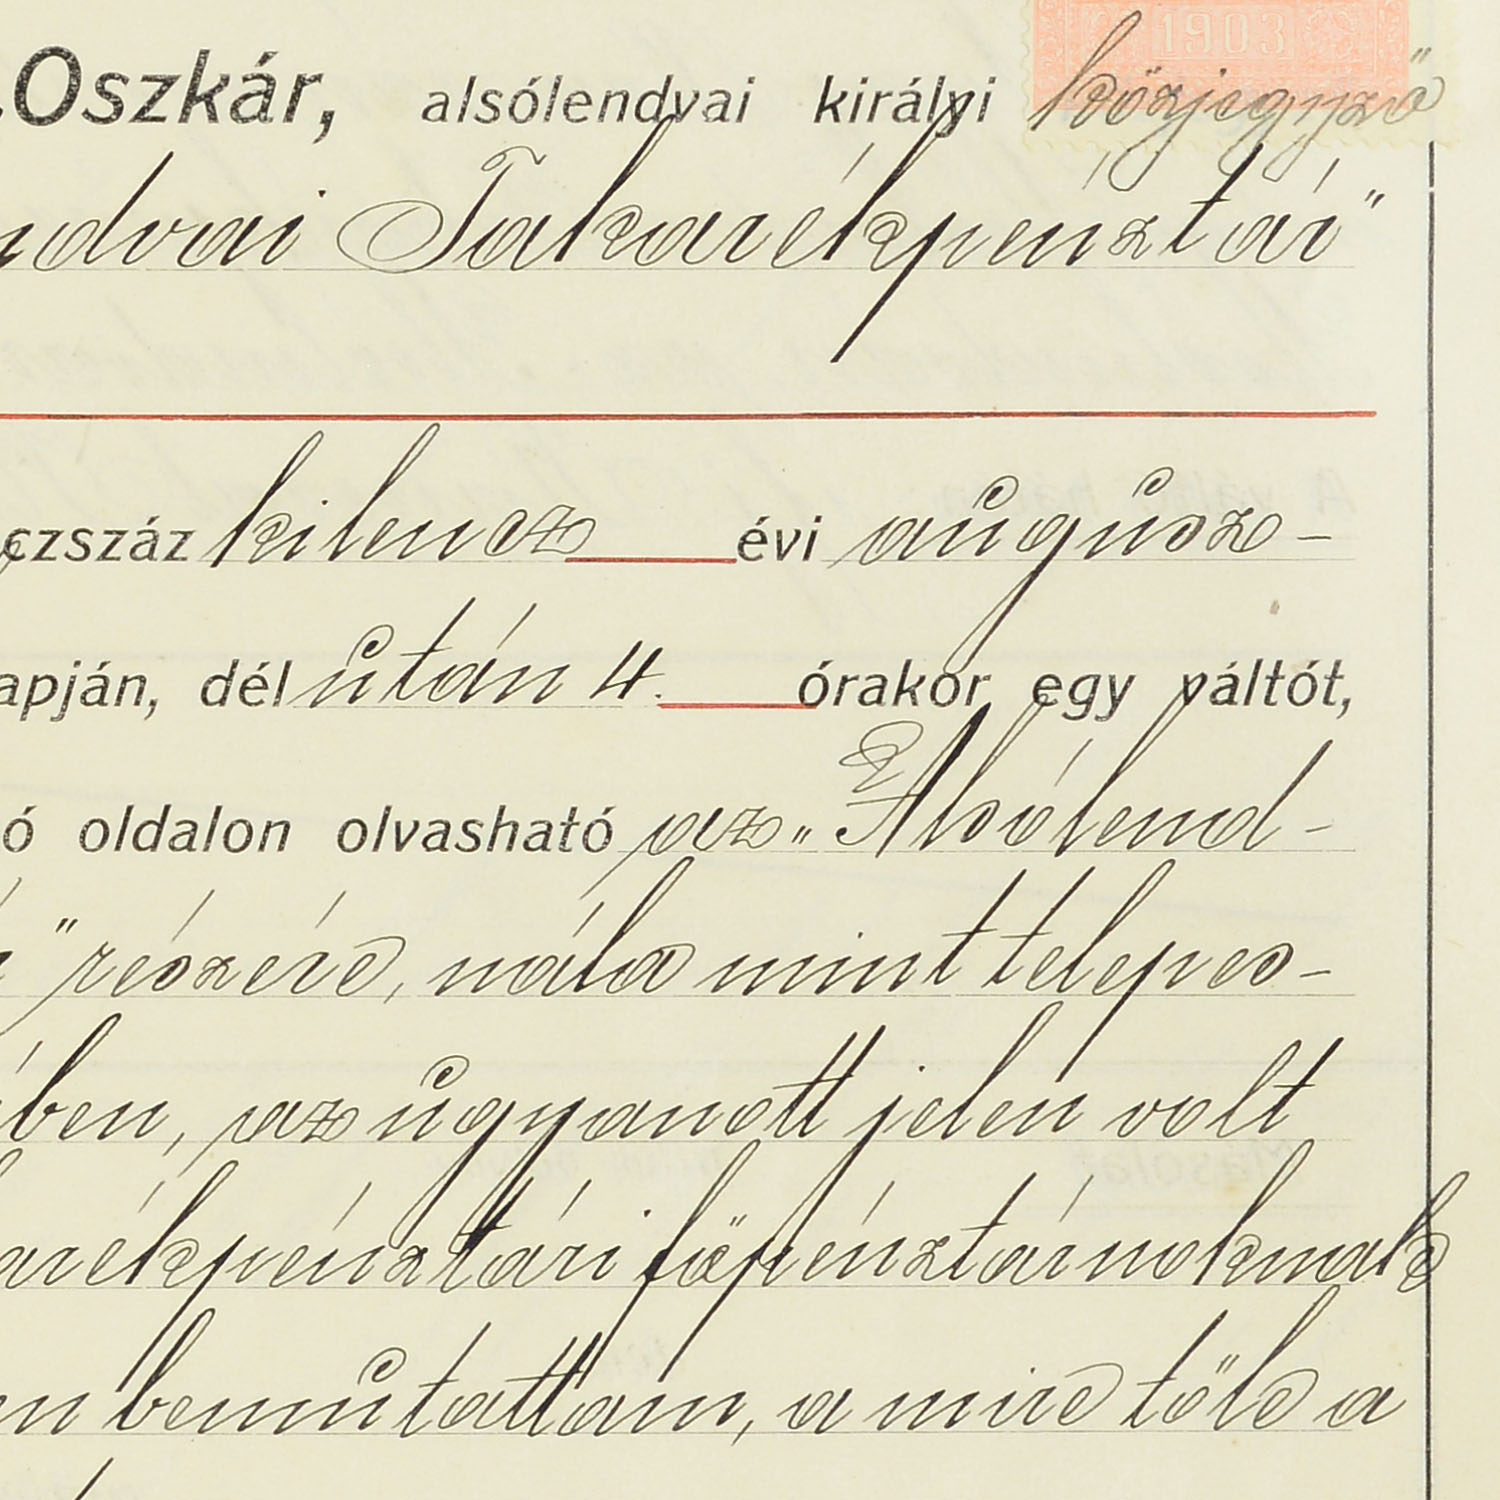 1903
.Oszkár, alsólendvai királyi közjegyző
ndvai Takarékpénztár"
czszáz kilencz évi augusz-
apján, dél után 4. órakor egy váltót,
ó oldalon olvasható az „Alsólend-
" részére, nála mint telepes-
ben, az ugyanott jelen volt
arékpénztári főpénztárnoknak
en bemutattam, a mire tőle a